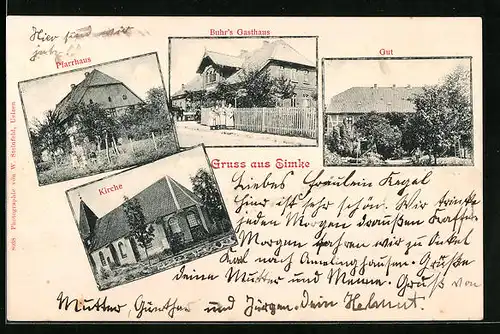 Hier sind wir
Pfarrhaus
Buhr's Gasthaus
Gut
Kirche
Gruss aus Eimke
8068. Photographie von W. Steinfeld, Uelzen
Liebes Fräulein Kegel
hier ist sehr schön. Wir trinken
jeden Morgen draußen Kaffee
Morgen fahren wir zu Onkel
Karl nach Amelinghausen. Grüße
deine Mutter und Gruß von
Mutter Günther und Jürgen. Dein Helmut.